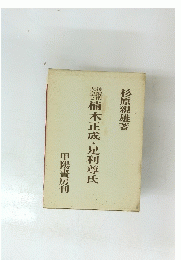 杉原親雄著
楠木正成・足利尊氏
甲陽書房刊